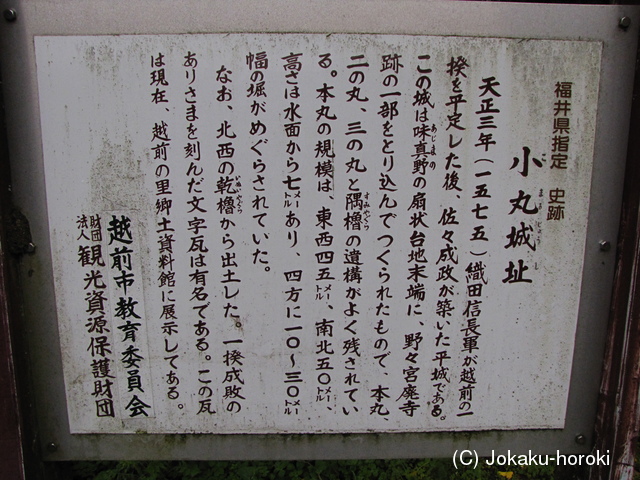 福井県指定 史跡
小丸城址
こまるじょうし
天正三年(一五七五)織田信長軍が越前の一
揆を平定した後、佐々成政が築いた平城である。
この城は味真野の扇状台地末端に、野々宮廃寺
跡の一部をとり込んでつくられたもので、本丸、
二の丸、三の丸と隅櫓の遺構がよく残されてい
る。本丸の規模は、東西四五メートル、南北五〇メートル、
高さは水面から七メートルあり、四方に一〇〜三〇メートル
幅の堀がめぐらされていた。
なお、北西の乾櫓から出土した。一揆成敗の
ありさまを刻んだ文字瓦は有名である。この瓦
は現在、越前の里郷土資料館に展示してある。
越前市教育委員会
財団法人 観光資源保護財団
(C) Jokaku-horoki